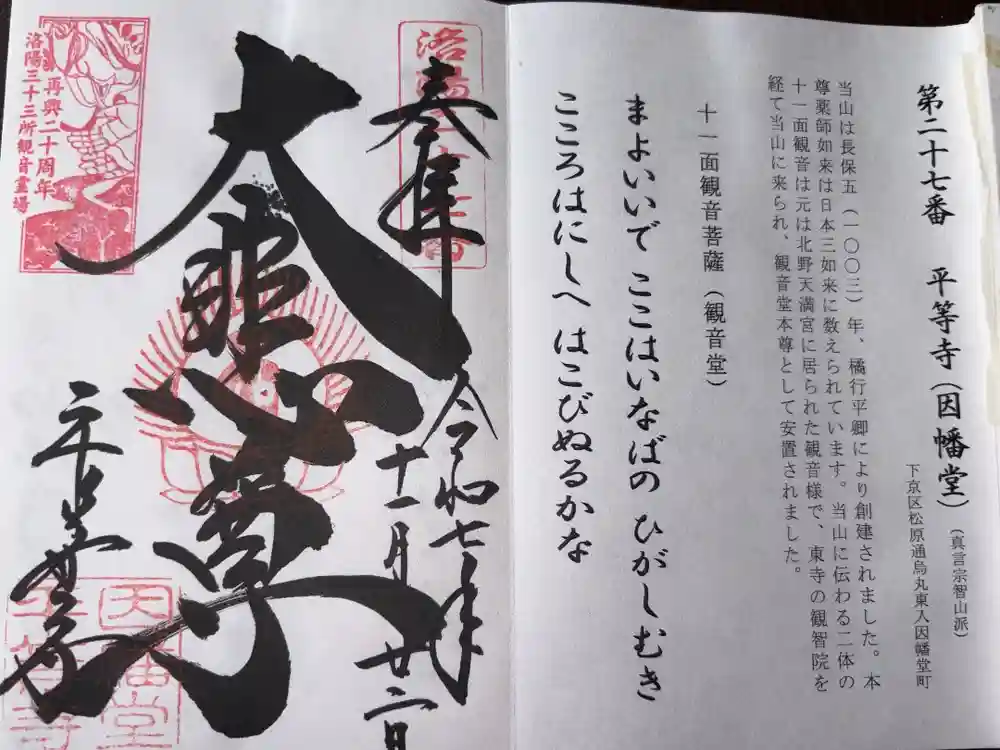 第二十七番　平等寺（因幡堂）（真言宗智山派）
下京区松原通烏丸東入因幡堂町
当山は長保五（一〇〇三）年、橘行平卿により創建されました。本
尊薬師如来は日本三如来に数えられています。当山に伝わる二体の
十一面観音は元は北野天満宮に居られた観音様で、東寺の観智院を
経て当山に来られ、観音堂本尊として安置されました。
十一面観音菩薩（観音堂）
まよいいで ここはいなばの ひがしむき
こころはにしへ はこびぬるかな
奉拝
令和七年
十一月
廿二日
大悲尊
平等寺
再興二十周年
洛陽三十三所観音霊場
因幡堂
平等寺